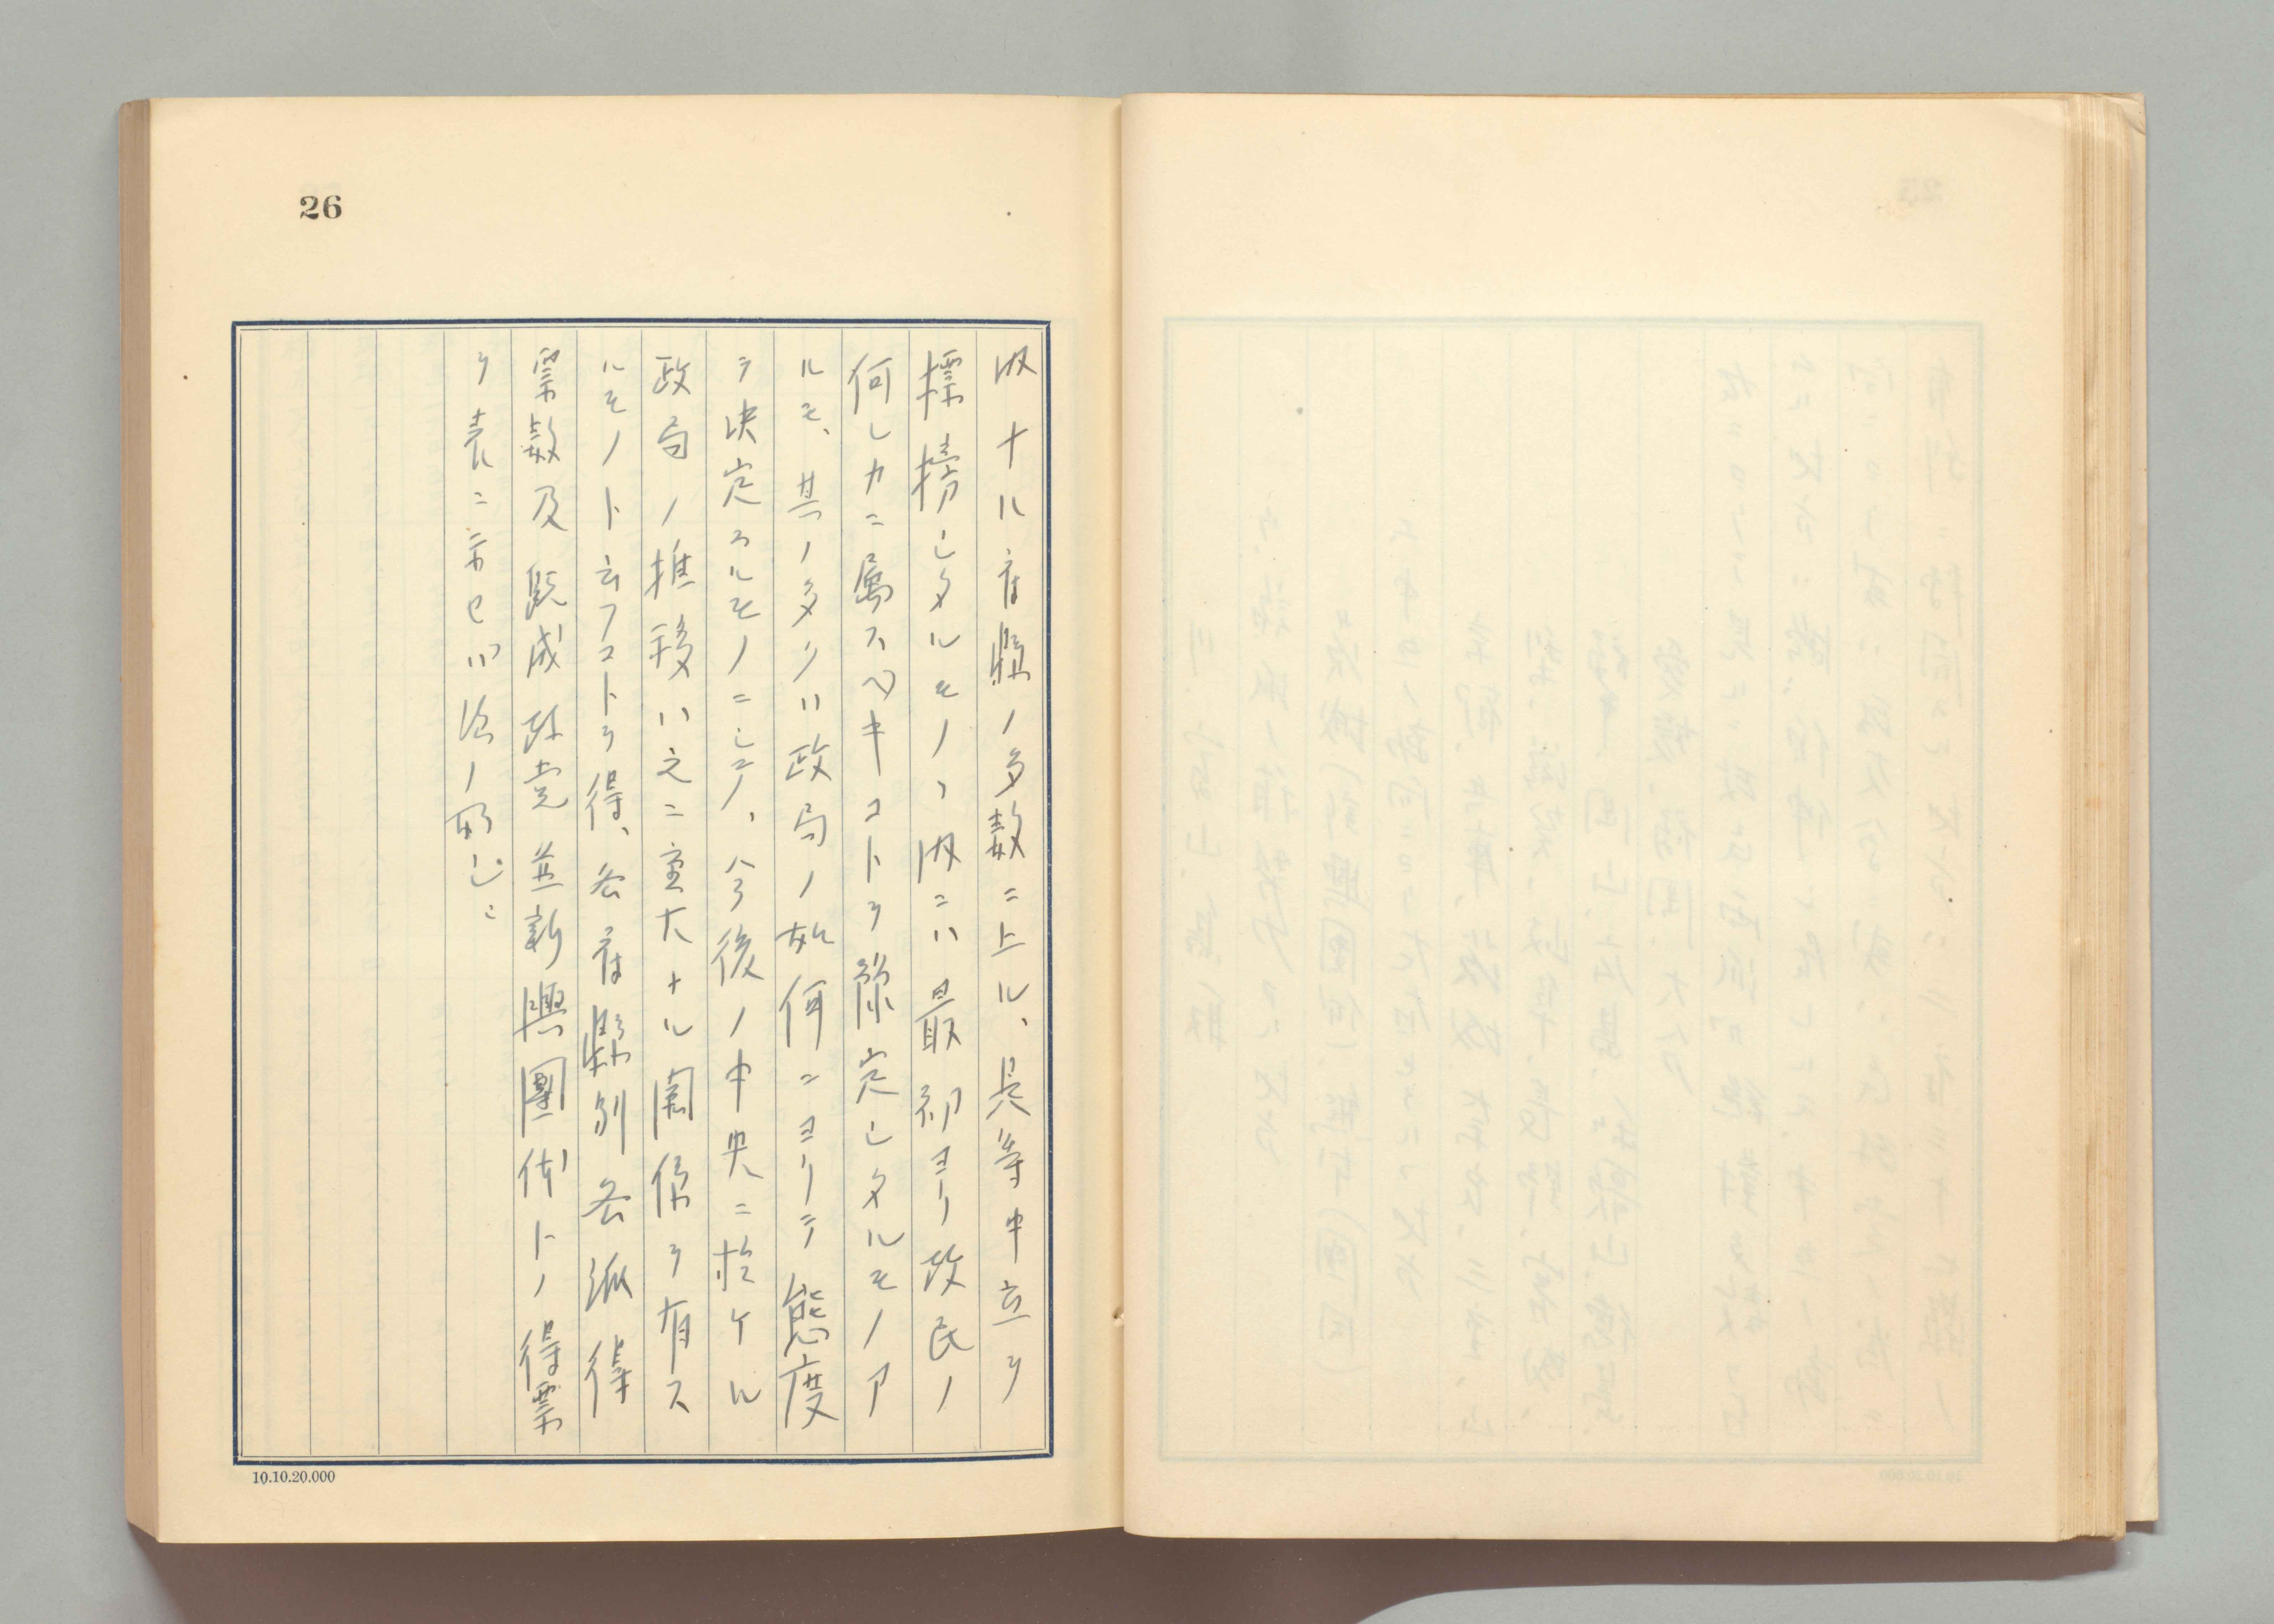 26
内ナル府縣ノ多数ニ上ル、是等中立ヲ
標榜シタルモノヽ内ニハ最初ヨリ政民ノ
何レカニ属スベキコトヲ豫定シタルモノア
ルモ、其ノ多クハ政局ノ如何ニヨリテ態度
ヲ決定スルモノニシテ、今後ノ中央ニ於ケル
政局ノ推移ハ之ニ重大ナル関係ヲ有ス
ルモノト云フコトヲ得、各府縣別各派得
票数及既成政党並新興團体トノ得票
ヲ表ニ示セバ次ノ如シ
10.10.20.000